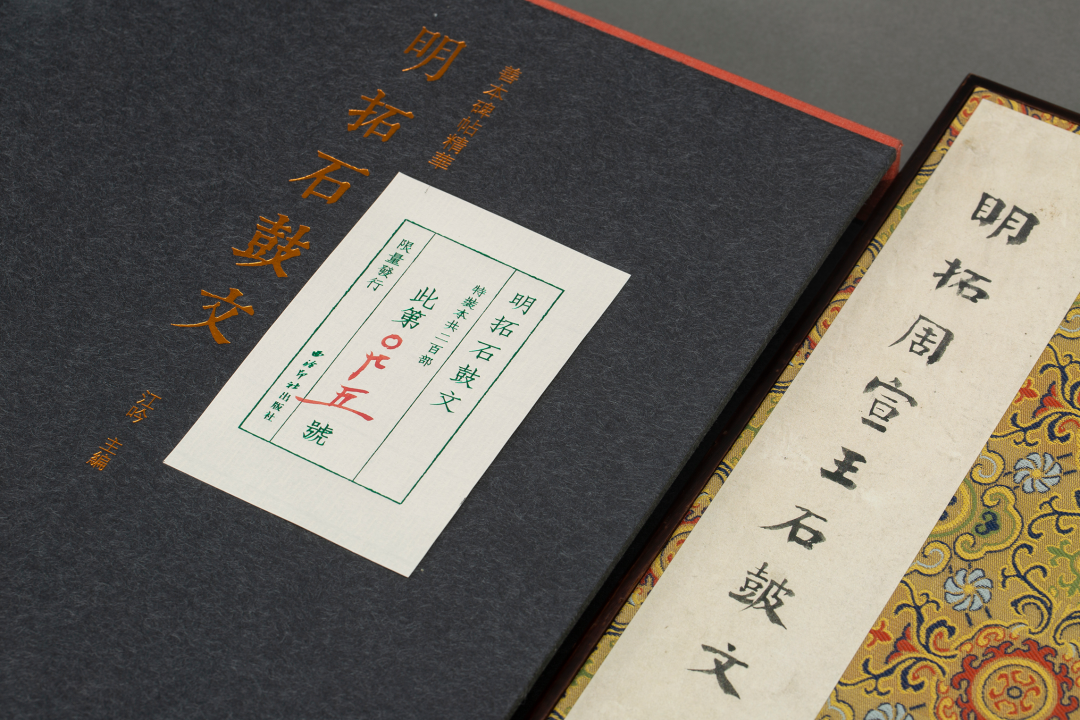 善本碑帖精華
明拓石鼓文
江吟 主编
明拓石鼓文
特裝本共二百部
此第〇九五號
限量發行
西泠印社出版社
明拓周宣王石鼓文